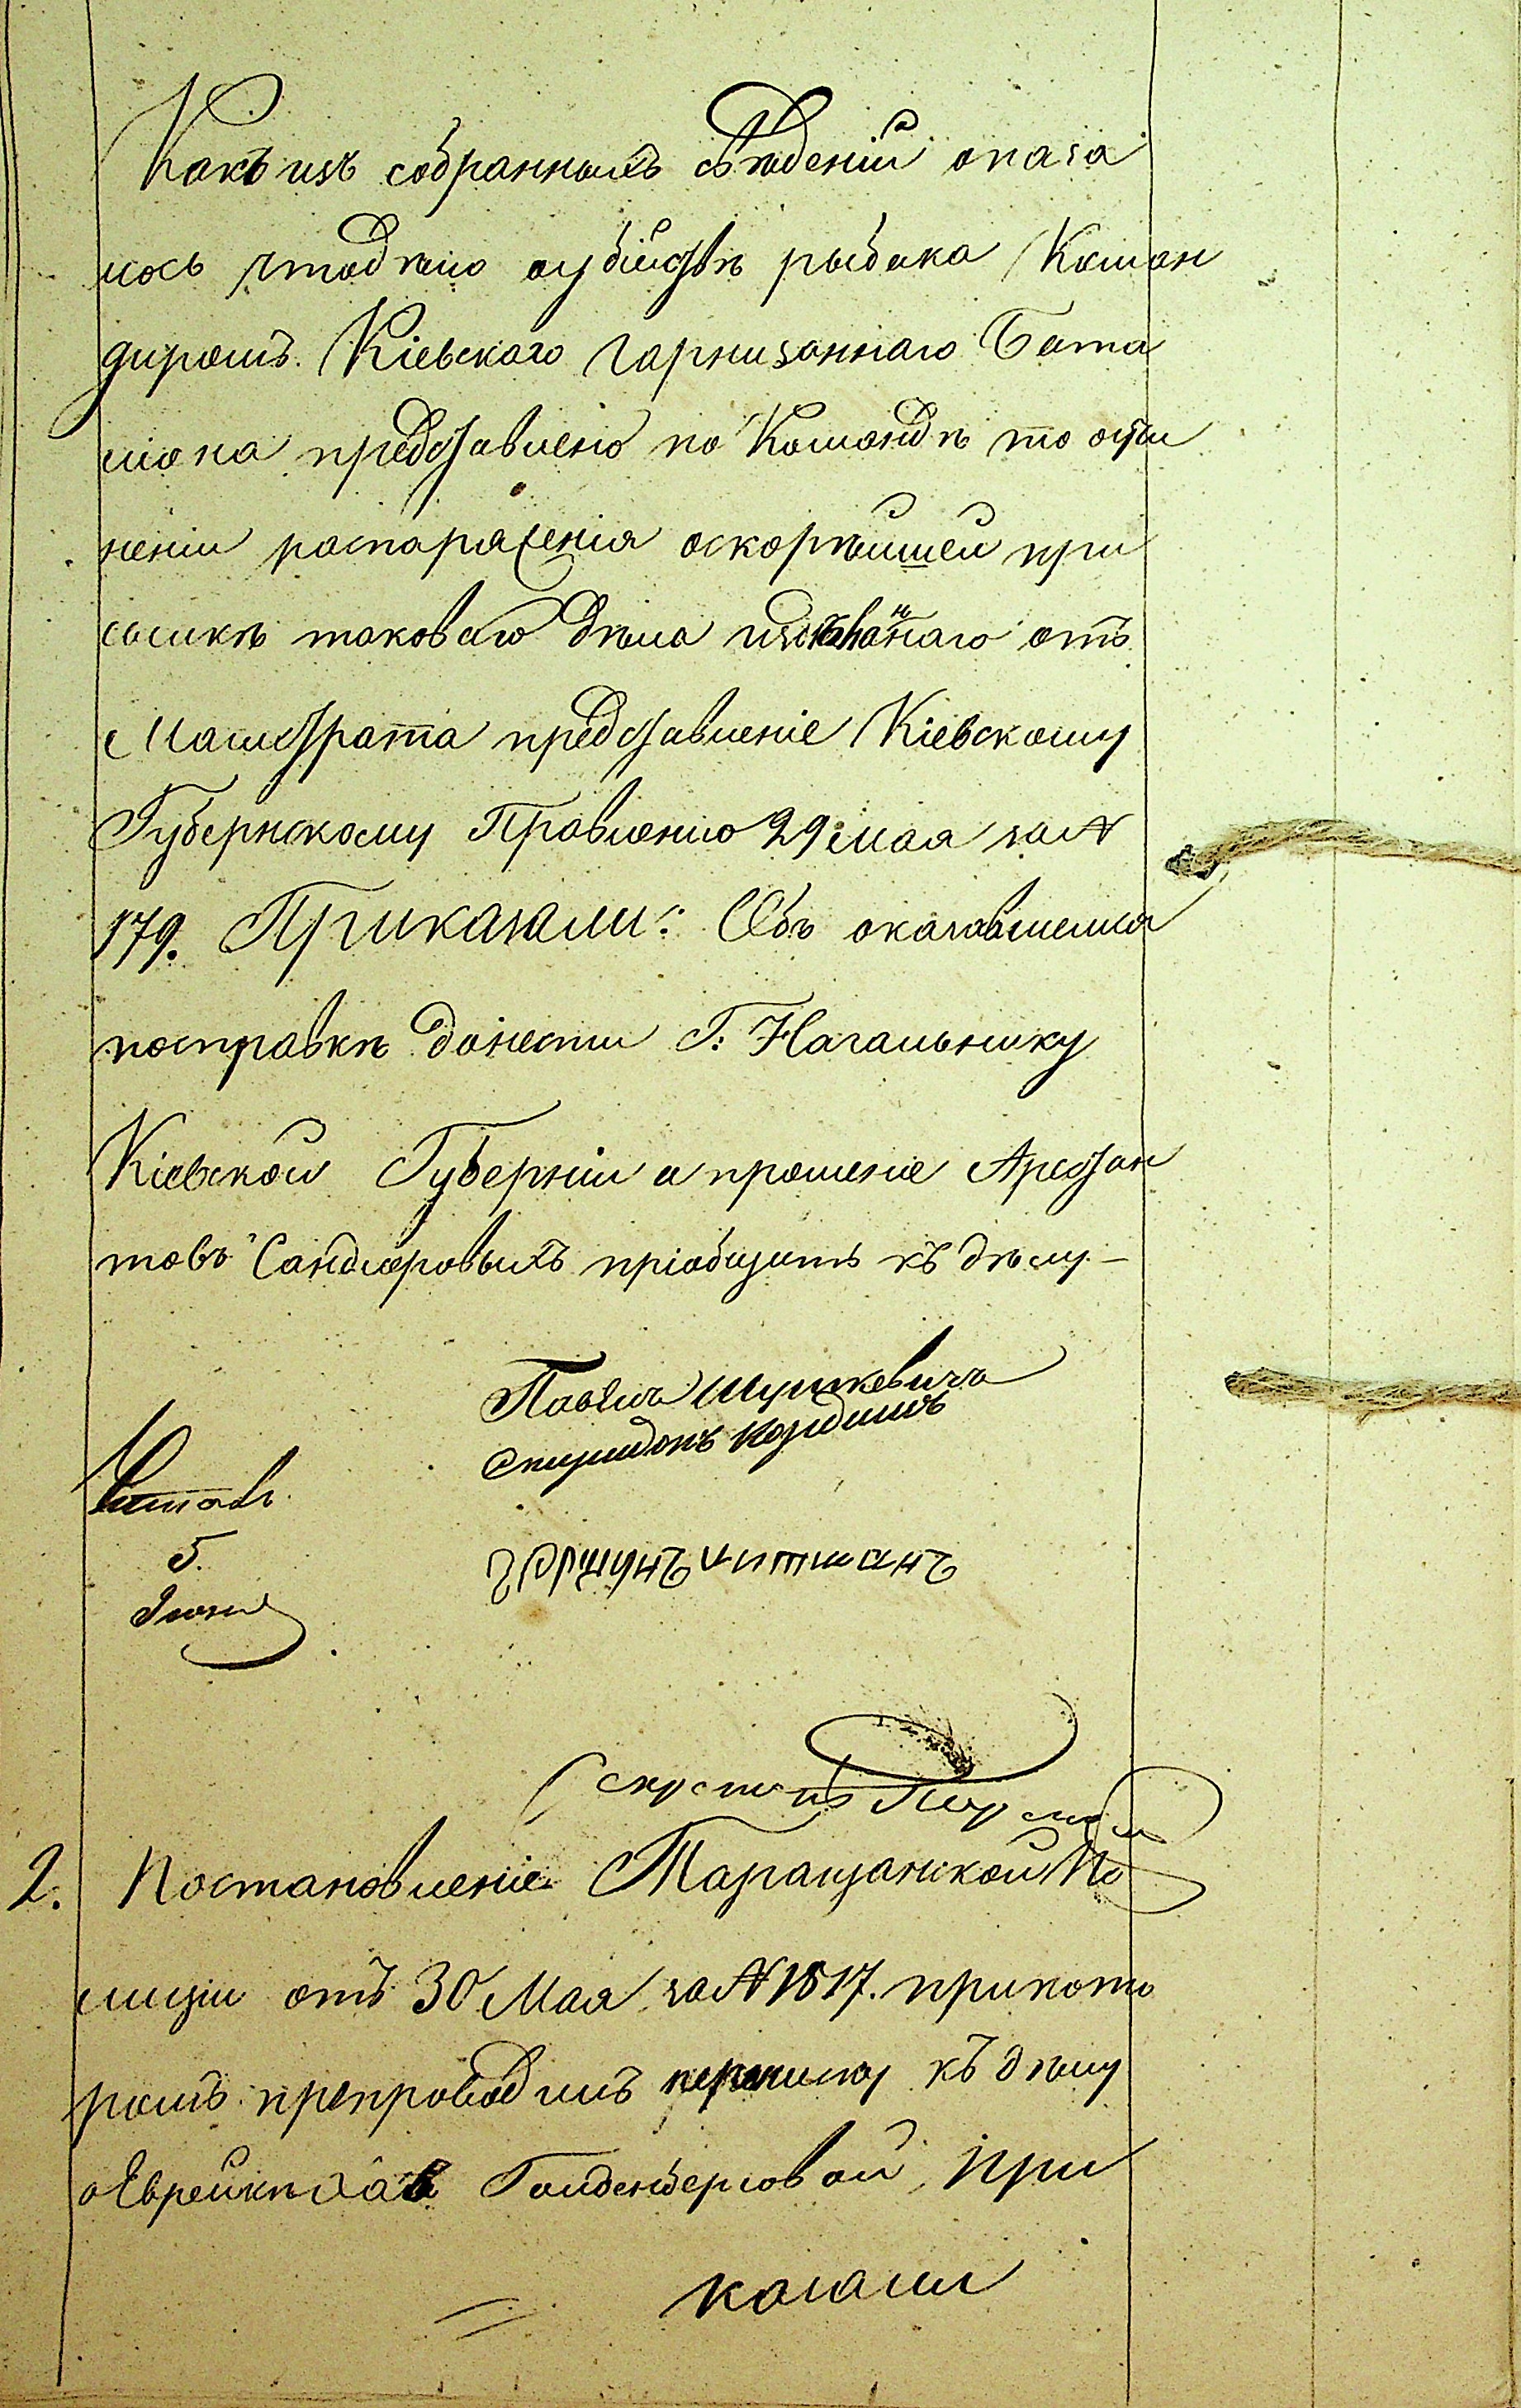 Какъ изъ собранныхъ свѣденій оказа
лось что дѣло о убійствѣ рыбака Коман
диромъ Кіевскаго гарнизоннаго Бата
ліона представлено по Командѣ то о учи
неніи распоряженія о скорѣйшей при
сылкѣ таковаго дѣла отъ
Магистрата представленіе Кіевскому
Губернскому Правленію 29 мая за №
179. Приказали: Объ оказавшемся
посправкѣ донести Г: Начальнику
Кіевской Губерніи а прошеніе Арестан
товъ Сандлеровыхъ пріобщить къ дѣлу –
Павелъ
Спиридонъ
Читалъ
5.
Іюня
Секретарь
2. Постановленіе Таращанской По
лиціи отъ 30 Мая за № 1817. при кото
ромъ препроводилъ переписку къ дѣлу
о Еврейкѣ Гольденберговой, При
казали